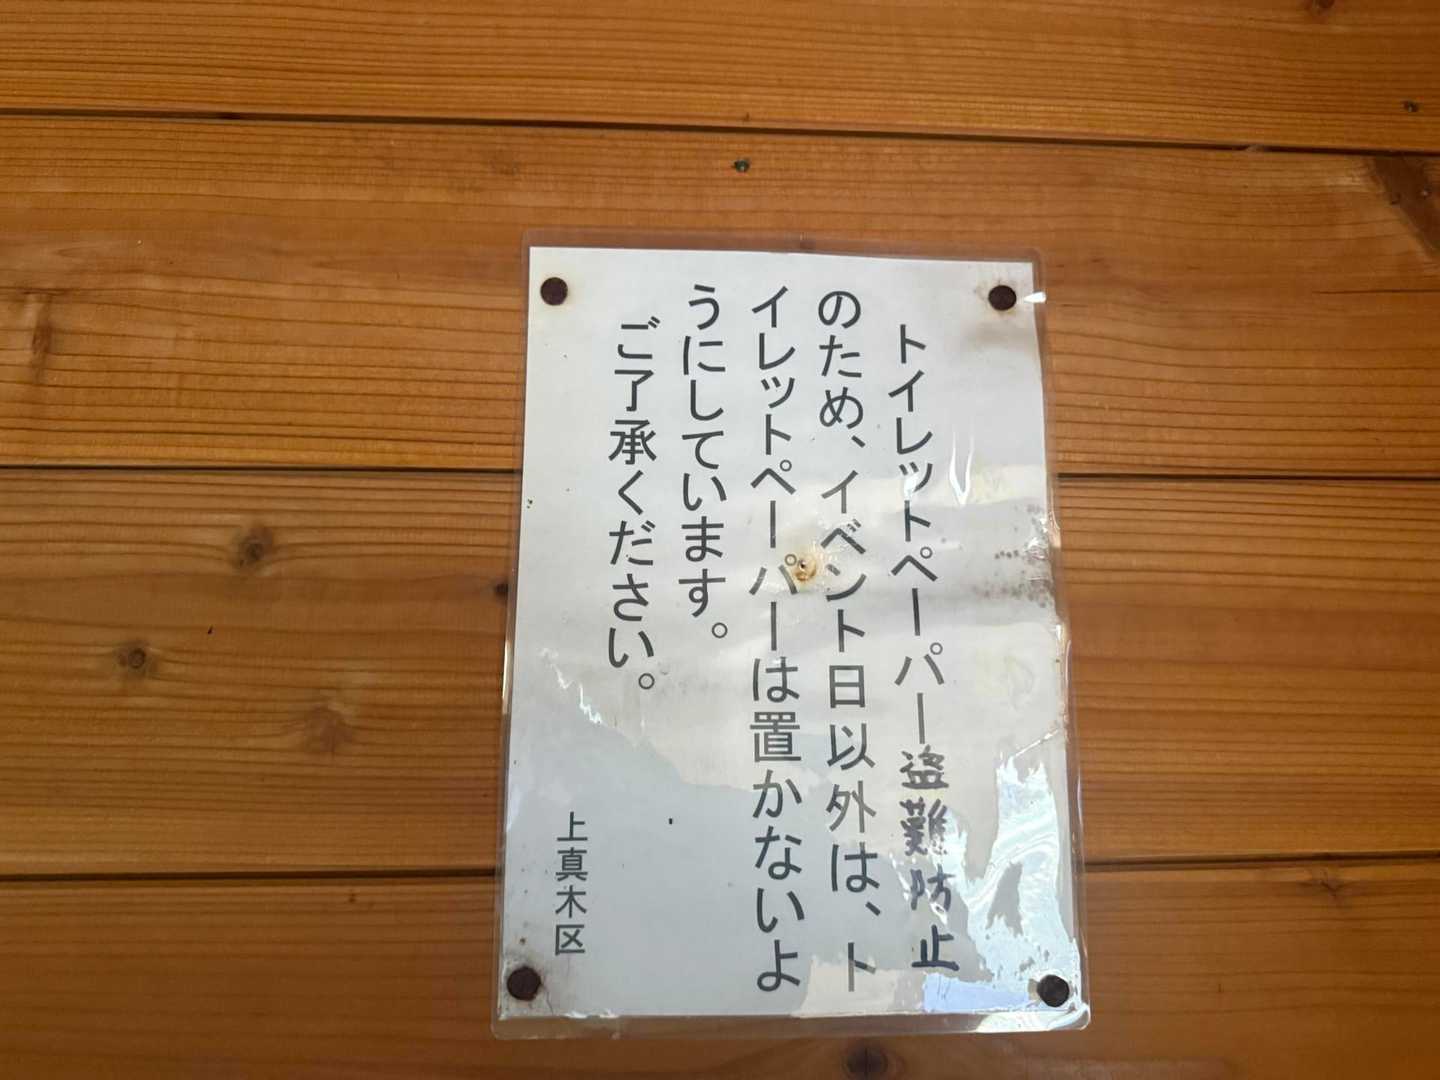 トイレットペーパー盗難防止
のため、イベント日以外は、ト
イレットペーパーは置かないよ
うにしています。
ご了承ください。
上真木区